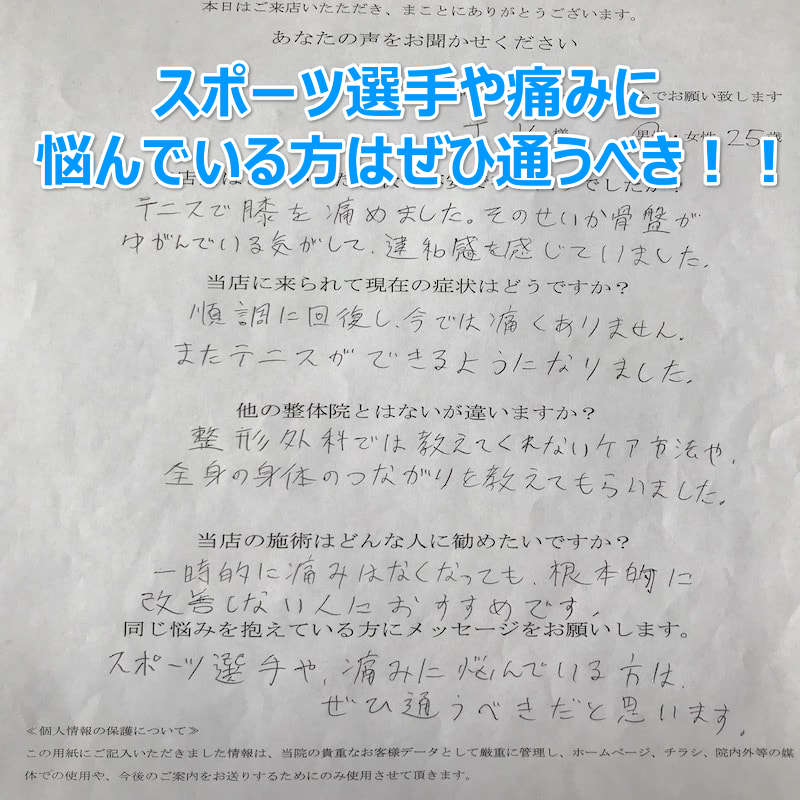 本日はご来店いただき、まことにありがとうございます。
あなたの声をお聞かせください
スポーツ選手や痛みに
でお願い致します
様 男性・女性 25歳
悩んでいる方はぜひ通うべき！！
テニスで膝を痛めました。そのせいか骨盤が
ゆがんでいる気がして、違和感を感じていました。
当店に来られて現在の症状はどうですか？
順調に回復し、今では痛くありません。
またテニスができるようになりました。
他の整体院とはないが違いますか？
整形外科では教えてくれないケア方法や、
全身の身体のつながりを教えてもらいました。
当店の施術はどんな人に勧めたいですか？
一時的に痛みはなくなっても、根本的に
改善しない人におすすめです。
同じ悩みを抱えている方にメッセージをお願いします。
スポーツ選手や、痛みに悩んでいる方は、
ぜひ通うべきだと思います。
≪個人情報の保護について≫
この用紙にご記入いただきました情報は、当院の貴重なお客様データとして厳重に管理し、ホームページ、チラシ、院内外等の媒
体での使用や、今後のご案内をお送りするためにのみ使用させて頂きます。